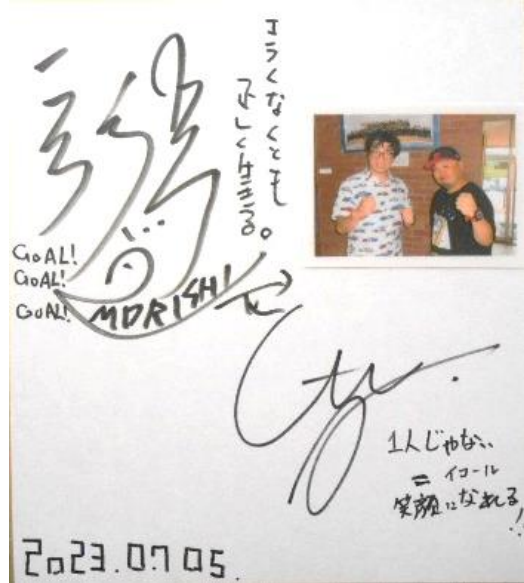 エラくなくとも
正しく生きる。
GOAL!
GOAL!
GOAL!
MORISHI
1人じゃない
= イコール
笑顔になれる!!
2023.07.05.